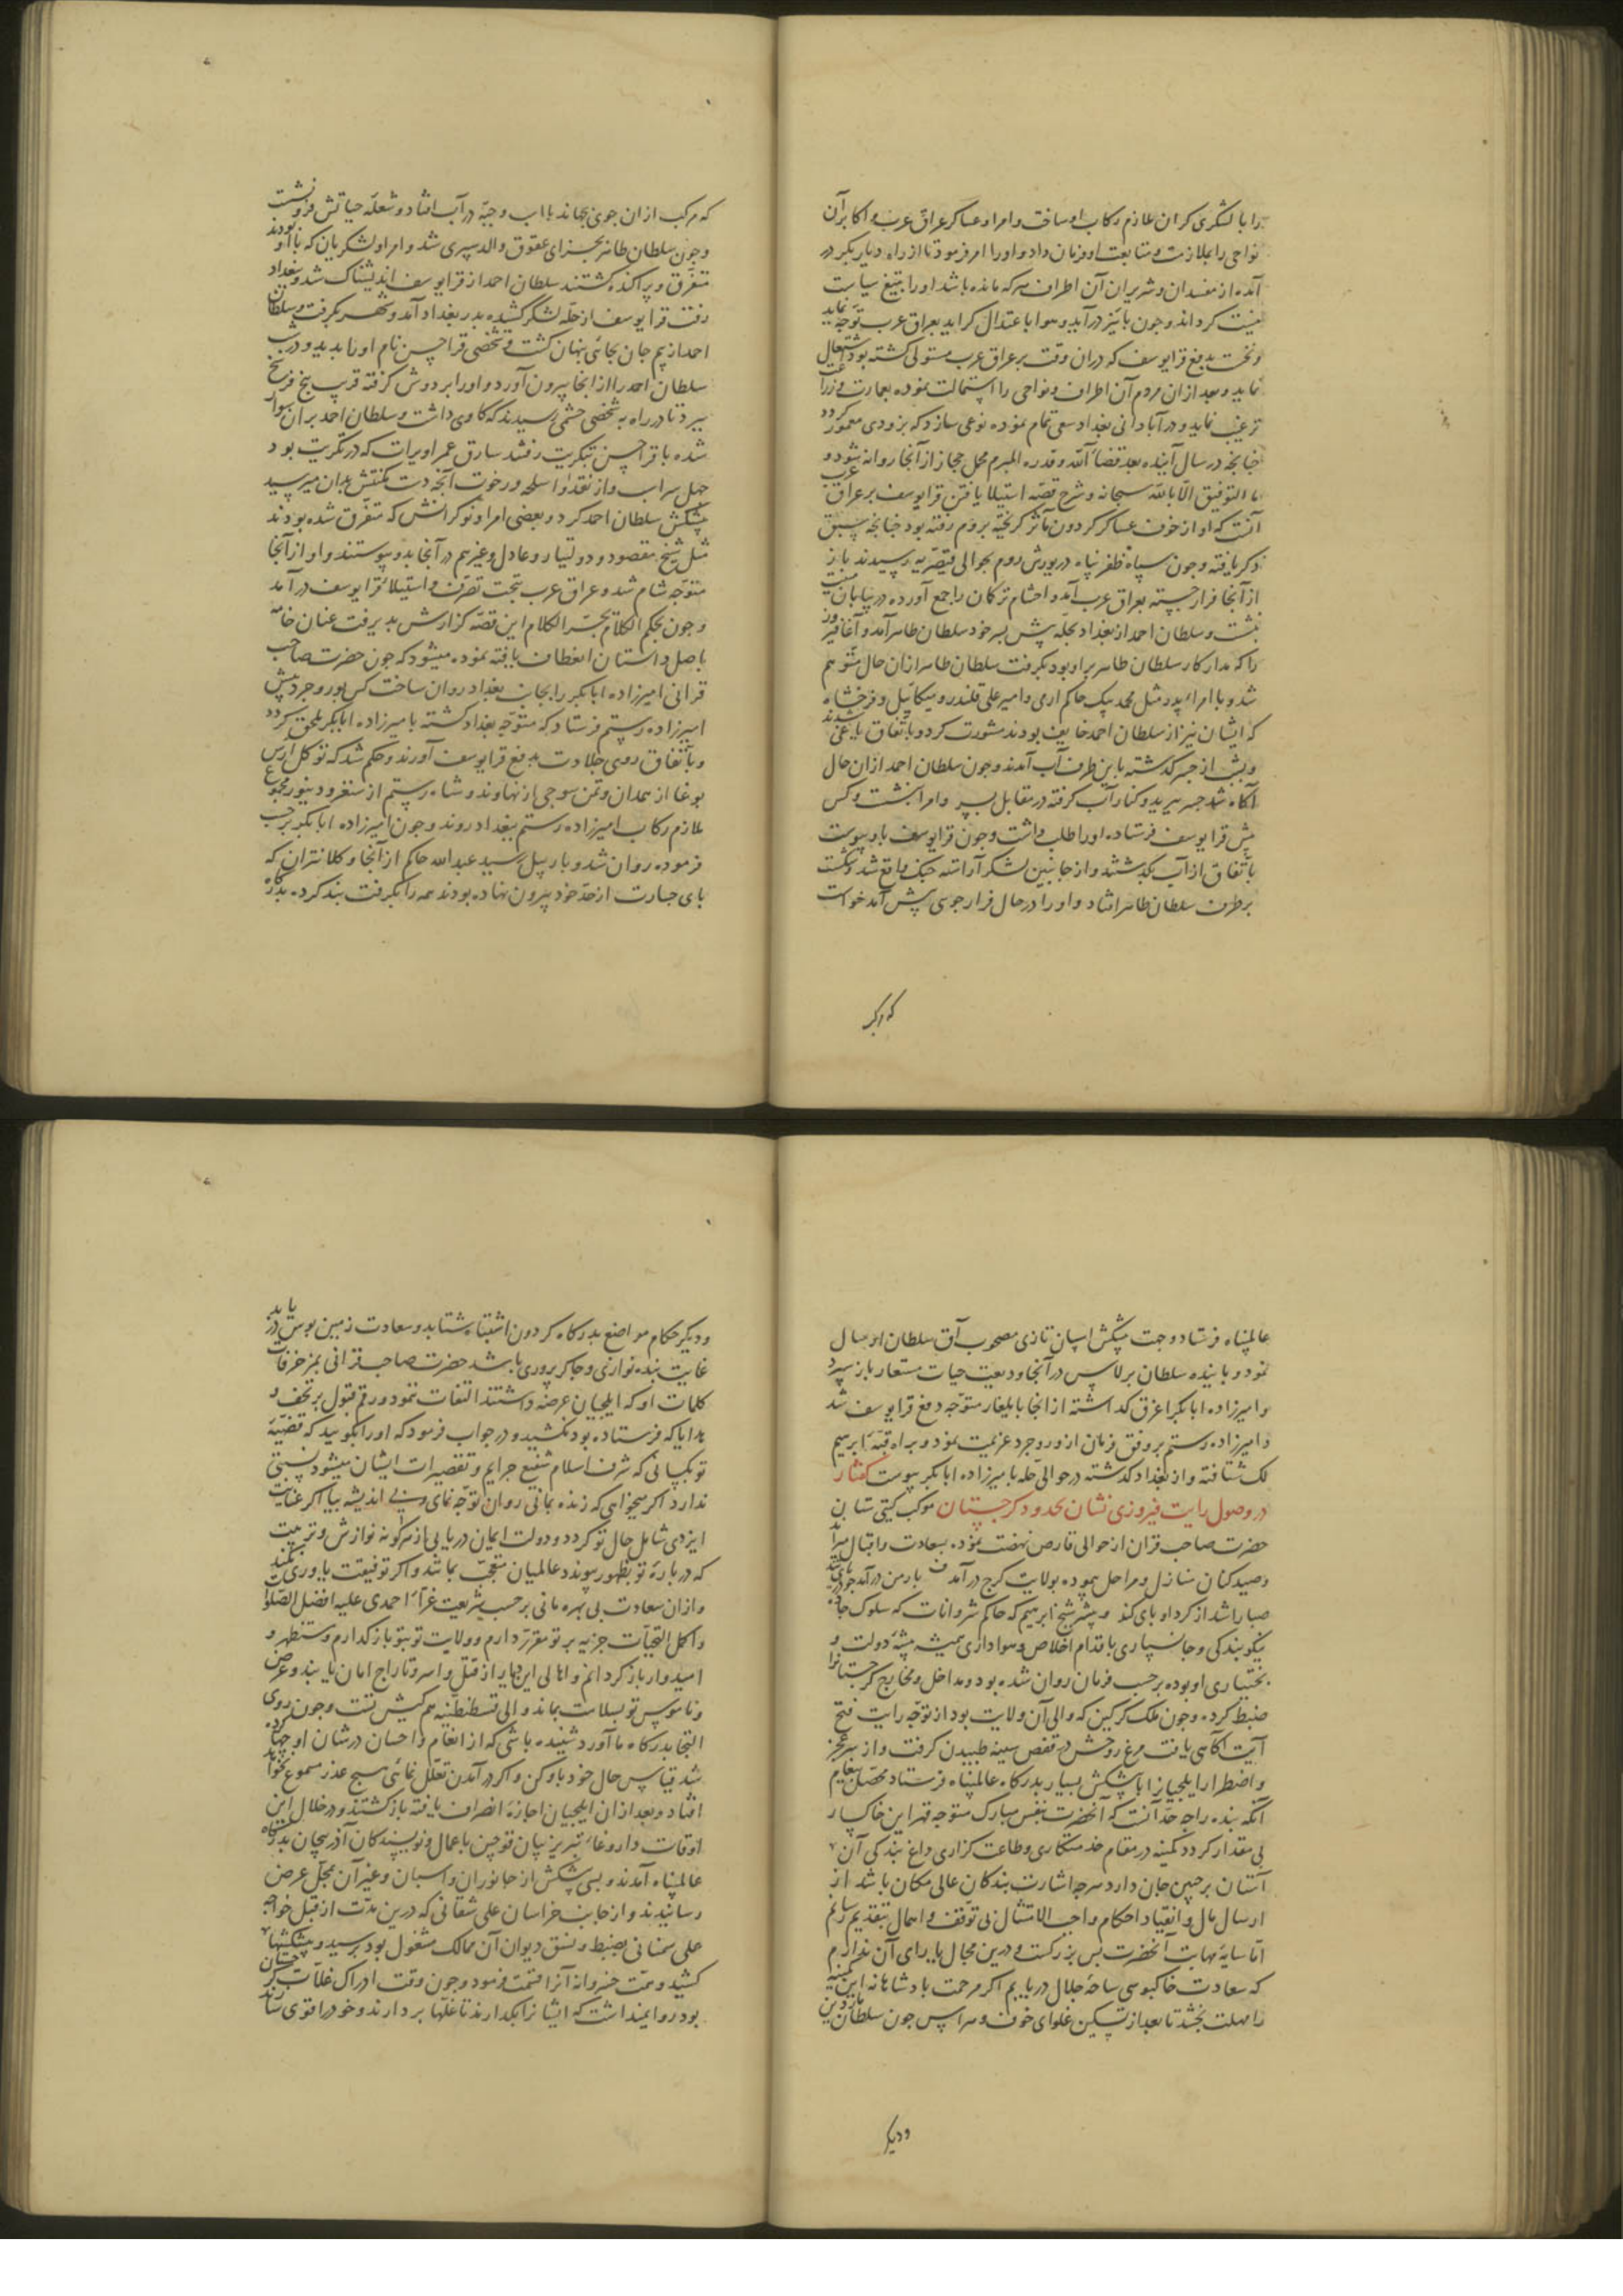 را با لشکری کران ملازم رکاب او ساخت و امرا و عساکر عراق عرب و اکابر آن
نواحی را بملازمت و متابعت او فرمان داد و او را امر فرمود تا از راه دیار بکر در
آمده از مفسدان و شریران آن اطراف هرکه مانده باشد او را بتیغ سیاست
نیست کرداند و چون پائیز درآید و هوا باعتدال کراید بعراق عرب توجه نماید
و نخست بدفع قرا یوسف که دران وقت بر عراق عرب مستولی کشته بود اشتغال
نماید و بعد ازان مردم آن اطراف و نواحی را استمالت نموده بعمارت و زراعت
ترغیب نماید و در آبادانی بغداد سعی تمام نموده نوعی سازد که بزودی معمور کردد
چنانچه در سال آینده بعد قضاء الله و قدره المبرم محمل حجاز از آنجا روانه شود و
ما التوفیق الا بالله سبحانه و شرح قصه استیلا یافتن قرا یوسف بر عراق عرب
آنست که او از خوف عساکر کردون مآثر کریخته بروم رفته بود چنانچه سبق
ذکر یافته و چون سپاه ظفر پناه در یورش روم بحوالی قیصریه رسیدند باز
از آنجا فرار جسته بعراق عرب آمد و احشام ترکمان را جمع آورده در بیابان هیت
بنشست و سلطان احمد از بغداد بحله پیش پسر خود سلطان طاهر آمد و آغا فیروز
را که مدار کار سلطان طاهر بر او بود بکرفت سلطان طاهر ازان حال متوهم
شد و با امراء پدر مثل محمد بیک حاکم ارمی و امیر علی قلندر و میکائیل و فرخشاه
که ایشان نیز از سلطان احمد خایف بودند مشورت کرد و باتفاق یاغی شدند
و بشب از جسر کذشته باین طرف آب آمدند و چون سلطان احمد ازان حال
آکاه شد جسر ببرید و کنار آب کرفته در مقابل پسر و امرا بنشست و کس
پیش قرا یوسف فرستاده او را طلب داشت و چون قرا یوسف باو پیوست
باتفاق از آب بکذشتند و از جانبین لشکر آراسته جنک واقع شد و شکست
بر طرف سلطان طاهر افتاد و او را در حال فرار جوی پیش آمد خواست
که اکر
که مرکب ازان جوی بجهاند با اسب و جبه در آب افتاد و شعله حیاتش فرو نشست
و چون سلطان طاهر بجزای عقوق والد سپری شد و امرا و لشکریان که با او بودند
متفرق و پراکنده کشتند سلطان احمد از قرا یوسف اندیشناک شد و ببغداد
رفت قرا یوسف از حله لشکر کشیده بدر بغداد آمد و شهر بکرفت و سلطان
احمد از بیم جان بجائی پنهان کشت و شخصی قرا حسن نام او را بدید و در شب
سلطان احمد را از انجا بیرون آورد و او را بر دوش کرفته قریب پنج فرسخ
ببرد تا در راه به شخصی حشمی رسیدند که کاوی داشت و سلطان احمد بران سوار
شده با قرا حسن بتکریت رفتند سارق عمر اویرات که در تکریت بود
چهل سر اسب و از نقد و اسلحه و رخوت آنچه دست مکنتش بدان میرسید
پیشکش سلطان احمد کرد و بعضی امرا و نوکرانش که متفرق شده بودند
مثل شیخ مقصود و دولتیار و عادل و غیرهم در آنجا بدو پیوستند و او از آنجا
متوجه شام شد و عراق عرب بتحت تصرف و استیلاء قرا یوسف درآمد
و چون بحکم الکلام یجر الکلام این قصه کزارش پذیرفت عنان خامه
باصل داستان انعطاف یافته نموده میشود که چون حضرت صاحب
قرانی امیرزاده ابابکر را بجانب بغداد روان ساخت کس بوروجرد پیش
امیرزاده رستم فرستاد که متوجه بغداد کشته بامیرزاده ابابکر ملحق کردد
و باتفاق روی جلادت بدفع قرا یوسف آورند و حکم شد که توکل ارس
بوغا از همدان و تمن سوجی از نهاوند و شاه رستم از سنقر و دینور مجموع
ملازم رکاب امیرزاده رستم ببغداد روند و چون امیرزاده ابابکر برحسب
فرموده روان شد و باربیل رسید عبد الله حاکم از آنجا و کلانتران که
پای جسارت از حد خود بیرون نهاده بودند همه را بکرفت بند کرده بدرکاه
عالم پناه فرستاد و جهت پیشکش اسپان تازی مصحوب آق سلطان ارسال
نمود و پاینده سلطان برلاس در آنجا ودیعت حیات مستعار باز سپرد
و امیرزاده ابابکر اغرق کذاشته از انجا بایلغار متوجه دفع قرا یوسف شد
و امیرزاده رستم بر وفق فرمان از وروجرد عزیمت نمود و براه قبه ابرهیم
لک شتافته و از بغداد کذشته در حوالی حله بامیرزاده ابابکر پیوست کفتار
در وصول رایت فیروزی نشان بحدود کرجستان موکب کیتی ستان
حضرت صاحب قران از حوالی قارص نهضت نموده بسعادت و اقبال میراند
و صیدکنان منازل و مراحل پیموده بولایت کرج درآمد ف بارمن درآمد جو دریای تند
صبا را شد از کرد او پای کند و پیشتر شیخ ابرهیم که حاکم شروانات که سلوک جاده
نیکو بندکی و جانسپاری باقدام اخلاص و هواداری همیشه پیشه دولت و
بختیاری او بوده برحسب فرمان روان شده بود و مداخل و مخارج کرجستانرا
ضبط کرده و چون ملک کرکین که والی آن ولایت بود از توجه رایت فتح
آیت آکاهی یافت مرغ روحش در قفص سینه طپیدن کرفت و از سر عجز
و اضطرار ایلچیان با پیشکش بسیار بدرکاه عالم پناه فرستاد محصل پیغام
آنکه بنده را چه حد آنست که آنحضرت بنفس مبارک متوجه قهر این خاکسار
بی مقدار کردد کمینه در مقام خدمتکاری و طاعت کزاری داغ بندکی آن
آستان بر جبین جان دارد هرچه اشارت بندکان عالی مکان باشد از
ارسال مال و انقیاد احکام واجب الامتثال بی توقف و اهمال بتقدیم رسانم
اما سایه مهابت آنحضرت بس بزرکست و درین مجال یارای آن ندارم
که سعادت خاکبوسی ساحه جلال دریابم اکر مرحمت پادشاهانه این کمینه
را مهلت بخشد تا بعد از تسکین غلوای خوف و هراس چون سلطان ماردین
و دیکر
و دیکر حکام مواضع بدرکاه کردون اشتباه شتابد و سعادت زمین بوس دریابد
غایت بنده نوازی و چاکر پروری باشد حضرت صاحب قرانی بمزخرفات
کلمات او که ایلچیان عرضه داشتند التفات ننمود و رقم قبول بر تحف و
هدایا که فرستاده بود نکشید و در جواب فرمود که او را بکویید که قضیه
تو بکسانی که شرف اسلام شفیع جرایم و تقصیرات ایشان میشود نسبتی
ندارد اکر میخواهی که زنده بمانی روان توجه نمای و بی اندیشه بیا اکر عنایت
ایزدی شامل حال تو کردد و دولت ایمان دریابی از هرکونه نوازش و تربیت
که در باره تو بظهور پیوندد عالمیان متعجب بمانند و اکر توفیقت یاوری نکند
و ازان سعادت بی بهره مانی برحسب شریعت غراء احمدی علیه افضل الصلوات
و اکمل التحیات جزیه بر تو مقرر دارم و ولایت تو بتو باز کذارم و مستظهر و
امیدوار باز کردانم و اهالی این دیار از قتل و اسر و تاراج امان یابند و عرض
و ناموس تو بسلامت بماند والی قسطنطنیه هم کیش تست و چون روی
التجا بدرکاه ما آورد شنیده باشی که از انعام و احسان در شان او چها کرده
شد قیاس حال خود باو کن و اکر در آمدن تعلل نمائی هیچ عذر مسموع نخواهد
افتاد و بعد ازان ایلچیان اجازه انصراف یافته باز کشتند و در خلال این
اوقات داروغاء تبریز بیان قوچین با عمال و نویسندکان آذربیجان بدرکاه
عالم پناه آمدند و بسی پیشکش از جانوران و اسبان و غیر آن بمحل عرض
رسانیدند و از جانب خراسان علی شقانی که درین مدت از قبل خواجه
علی سمنانی بضبط و نسق دیوان آن ممالک مشغول بود برسید و پیشکشها
کشید و همت خسروانه آنرا قسمت فرمود و چون وقت ادراک غلات کرجستان
بود روا نمیداشت که ایشانرا بکذارند تا غلها بردارند و خود را قوی سازند